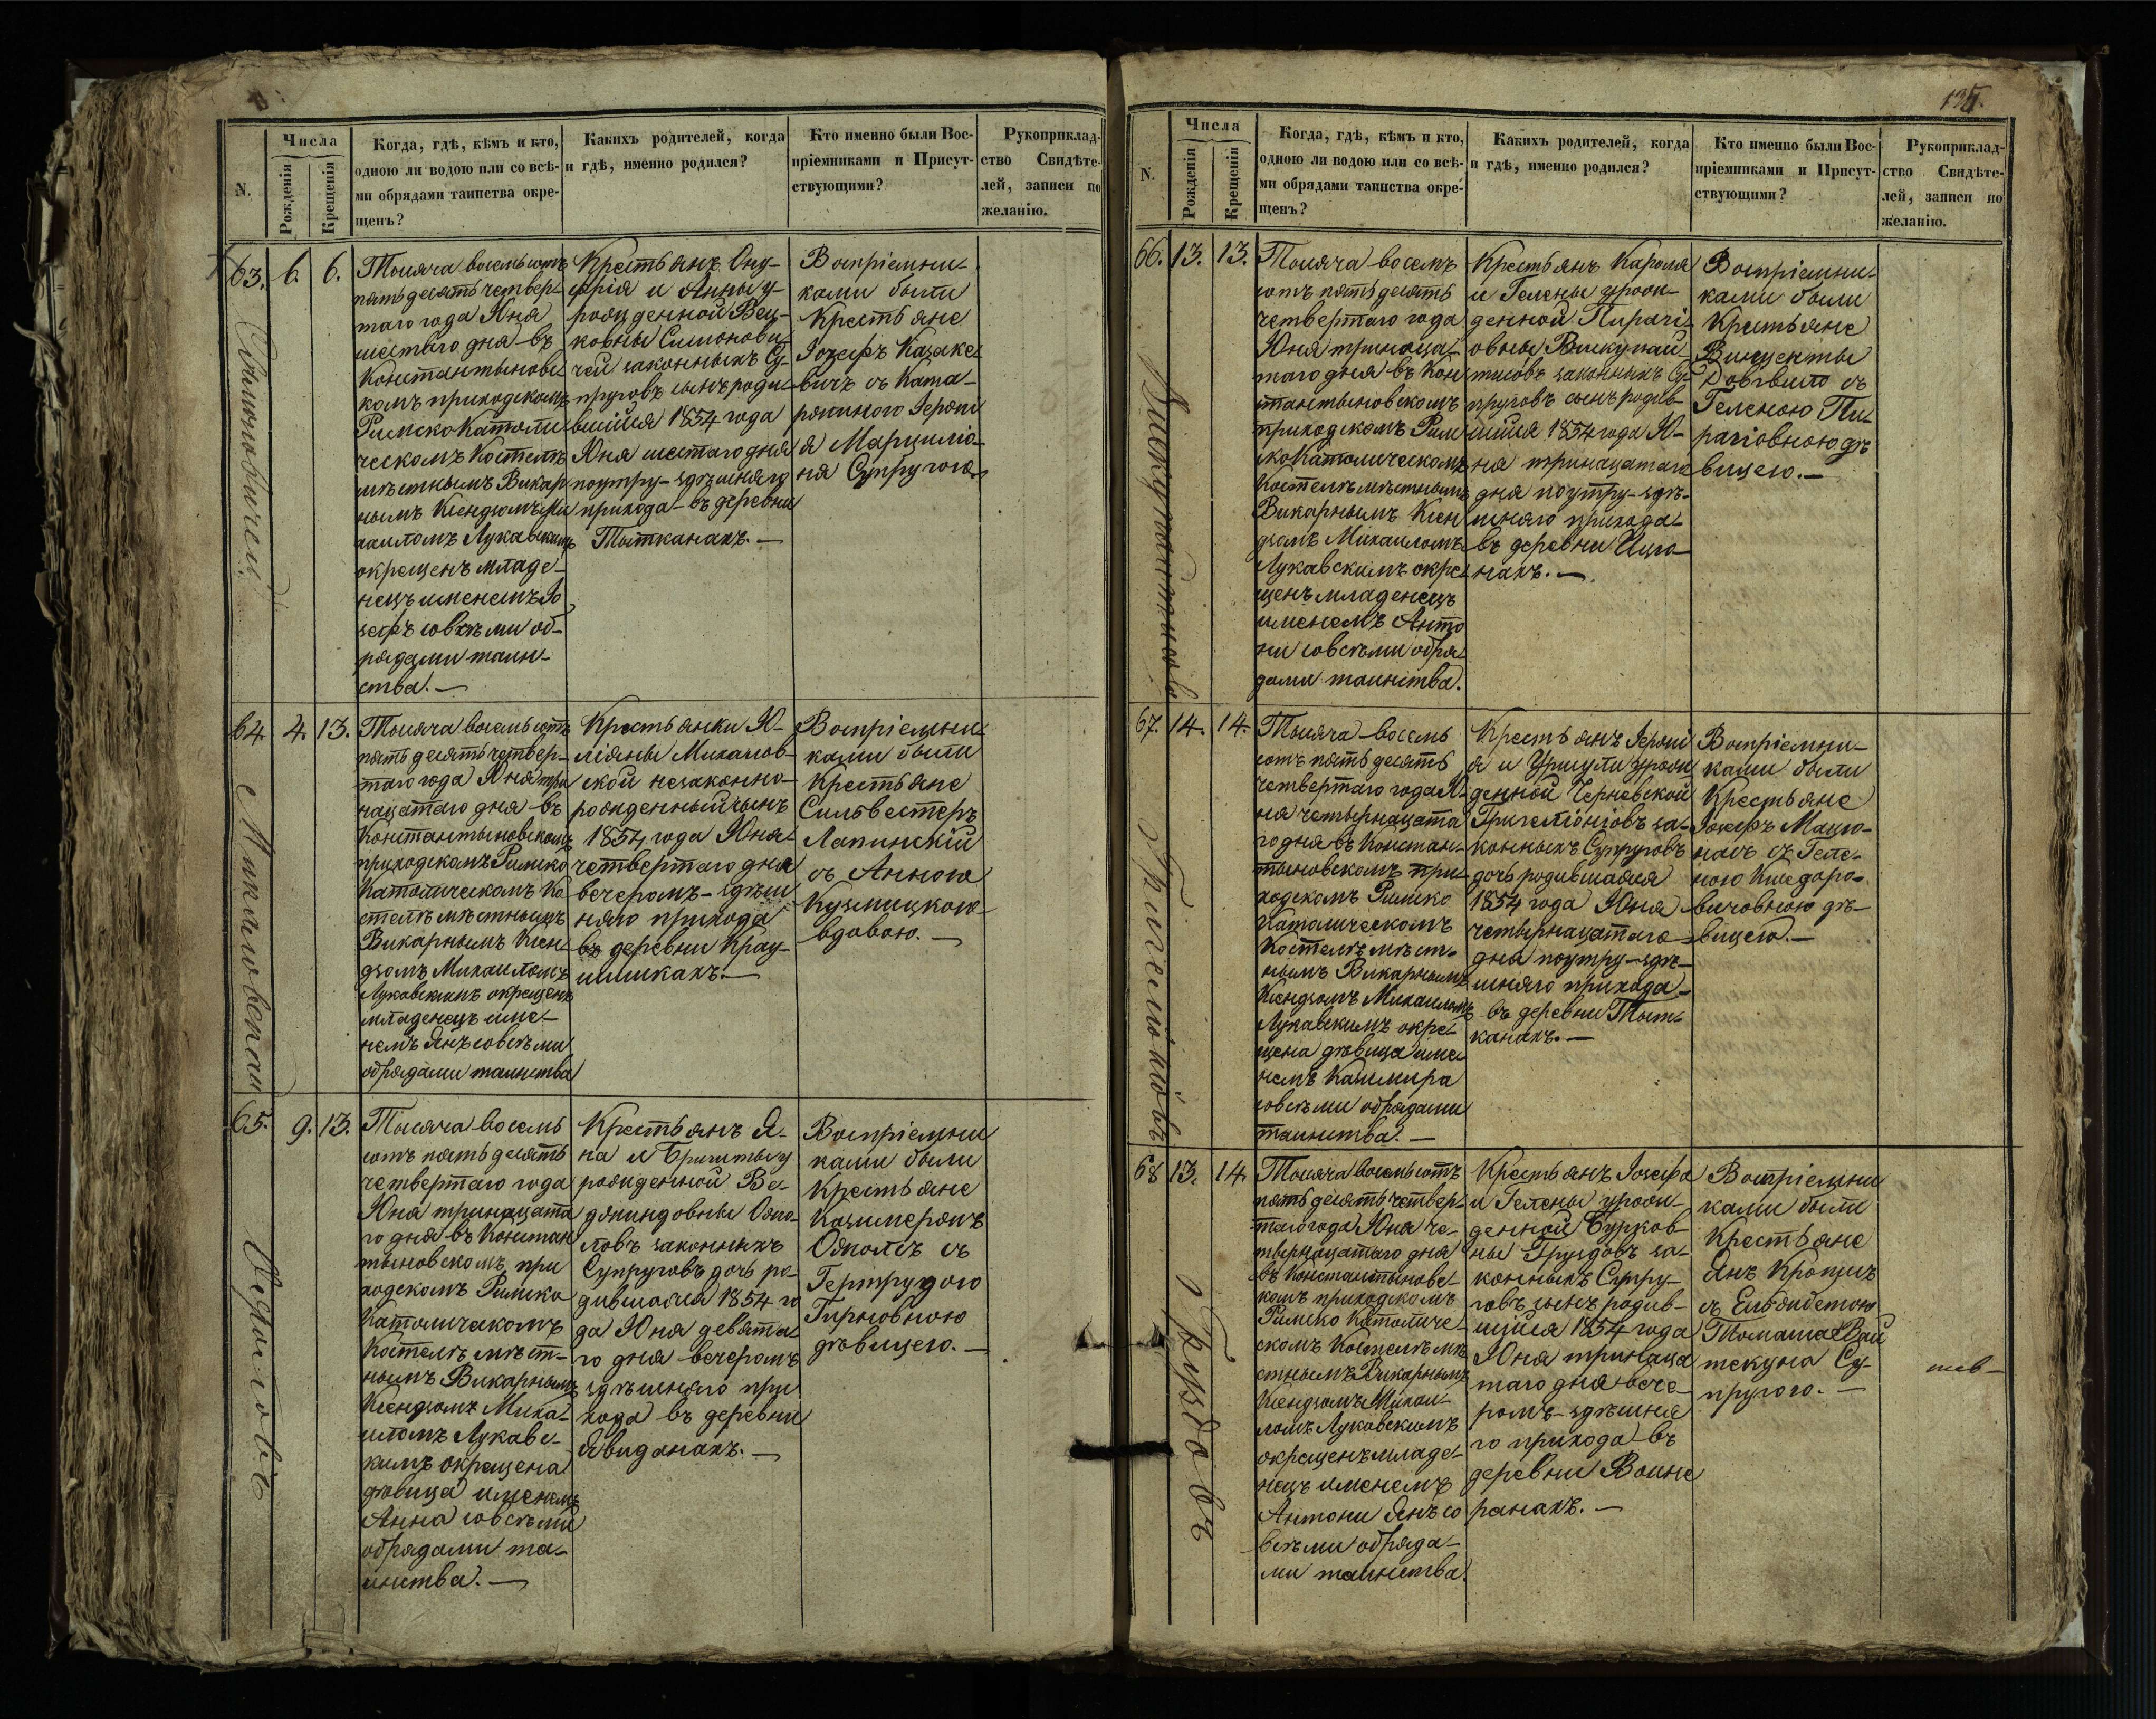 N.
Числа
Рожденія
Крещенія
Когда, гдѣ, кѣмъ и кто,
одною ли водою или со всѣ-
ми обрядами таинства окре-
щенъ?
Какихъ родителей, когда
и гдѣ, именно родился?
Кто именно были Вос-
пріемниками и Присут-
ствующими?
Рукоприклад-
ство Свидѣте-
лей, записи по
желанію.
63.
6.
6.
Тысяча восемьсотъ
пятьдесятъ четвер-
таго года Юня
шестаго дня въ
Константыновс-
комъ приходскомъ
Римско Католи-
ческомъ Костелѣ
мѣстнымъ Викар
нымъ Ксендзомъ Ми
хаиломъ Лукавскимъ
окрещенъ младе-
нецъ именемъ Іо
зефъ совсѣми об-
рядами таин-
ства.—
Крестьянъ Ону-
фрія и Анны у-
рожденной Вец-
ковны Симонови-
чей законныхъ Су-
пруговъ сынъ роди-
вшійся 1854 года
Юня шестаго дня
поутру - здѣшняго
прихода - въ деревни
Тытканахъ.—
Воспріемни-
ками были
Крестьяне
Іозефъ Казаке-
вичъ съ Ката-
ржиною Іерони
а Марцинія-
ня Супругою
64
4.
13.
Тысяча восемьсотъ
пятьдесятъ четвер-
таго года Юня три
нацатаго дня въ
Константыновскомъ
приходскомъ Римско
Католическомъ Ко
стелѣ мѣстнымъ
Викарнымъ Ксен
дзомъ Михаиломъ
Лукавскимъ окрещенъ
младенецъ име-
немъ Янъ совсѣми
обрядами таинства
Крестьянки Ю-
ліяны Михалов-
ской незаконно-
рожденный сынъ
1854 года Юня
четвертаго дня
вечеромъ - здѣш
няго прихода
въ деревни Крау-
шлишкахъ.—
Воспріемни-
ками были
Крестьяне
Сильвестеръ
Лапинскій
съ Анною
Кузмицкою
вдовою.—
65.
9.
13.
Тысяча восемь
сотъ пятьдесятъ
четвертаго года
Юня тринацата
го дня въ Констан
тыновскомъ при
ходскомъ Римско
Католическомъ
Костелѣ мѣст-
нымъ Викарнымъ
Ксендзомъ Миха-
иломъ Лукавс-
кимъ окрещена
дѣвица именемъ
Анна совсѣми
обрядами та-
инства.—
Крестьянъ Я-
на и Бригиты у
рожденной Ве-
ловъ законныхъ
Супруговъ дочь ро-
дившаяся 1854 го
да Юня девята
го дня вечеромъ
здѣшняго при
хода въ деревни
Явидзанахъ.—
Воспріемни
ками были
Крестьяне
Казимержъ
съ
Гертрудою
Гирновною
дѣвицею.—
Симоновичей
Михаловскай
N.
Числа
Рожденія
Крещенія
Когда, гдѣ, кѣмъ и кто,
одною ли водою или со всѣ-
ми обрядами таинства окре-
щенъ?
Какихъ родителей, когда
и гдѣ, именно родился?
Кто именно были Вос-
пріемниками и Присут-
ствующими?
Рукоприклад-
ство Свидѣте-
лей, записи по
желанію.
66.
13.
13.
Тысяча восемь
сотъ пятьдесятъ
четвертаго года
Юня тринаца-
таго дня въ Кон
стантыновскомъ
приходскомъ Рим
ско Католическомъ
Костелѣ мѣстнымъ
Викарнымъ Ксен
дзомъ Михаиломъ
Лукавскимъ окре-
щенъ младенецъ
именемъ Анто
ни совсѣми обря
дами таинства.
Крестьянъ Кароля
и Гелены урож-
денной Пирагі-
овны Вискупай
тисовъ законныхъ Су-
пруговъ сынъ родив-
шійся 1854 года Ю-
ня тринацатаго
дня поутру - здѣ-
шняго прихода
въ деревни
нахъ.—
Воспріемни-
ками были
Крестьяне
Винценты
Довгвило съ
Геленою Пи-
рагіовною дѣ
вицею.—
67.
14.
14.
Тысяча восемь
сотъ пятьдесятъ
четвертаго года Ю-
ня четырнацата
го дня въ Констан-
тыновскомъ при-
ходскомъ Римско
Католическомъ
Костелѣ мѣст-
нымъ Викарнымъ
Ксендзомъ Михаиломъ
Лукавскимъ окре-
щена дѣвица име
немъ Казимира
совсѣми обрядами
таинства.—
Крестьянъ Іерони
а и Уршули урож
денной Черневской
за-
конныхъ Супруговъ
дочь родившаяся
1854 года Юня
четырнацатаго
дня поутру - здѣ-
шняго прихода
въ деревни Тыт-
канахъ.—
Воспріемни-
ками были
Крестьяне
Іозефъ Мацю-
насъ съ Геле-
ною
дѣ-
вицею.—
68
13.
14.
Тысяча восемьсотъ
пятьдесятъ четвер-
таго года Юня че-
тырнацатаго дня
въ Константыновс-
комъ приходскомъ
Римско Католиче-
скомъ Костелѣ мѣ
стнымъ Викарнымъ
Ксендзомъ Михаи-
ломъ Лукавскимъ
окрещенъ младе-
нецъ именемъ
Антони Янъ со
всѣми обряда-
ми таинства.
Крестьянъ Іозефа
и Гелены урож-
денной Бурков-
ны Груздовъ за-
конныхъ Супру-
говъ сынъ родив-
шійся 1854 года
Юня тринаца
таго дня вече-
ромъ - здѣшня
го прихода въ
деревни Воине
ранахъ.—
Воспріемни
ками были
Крестьяне
Янъ
съ Ельжбетою
Томаша Вай
текуна Су-
пругою.—
Вискупайтисовъ
Груздовъ